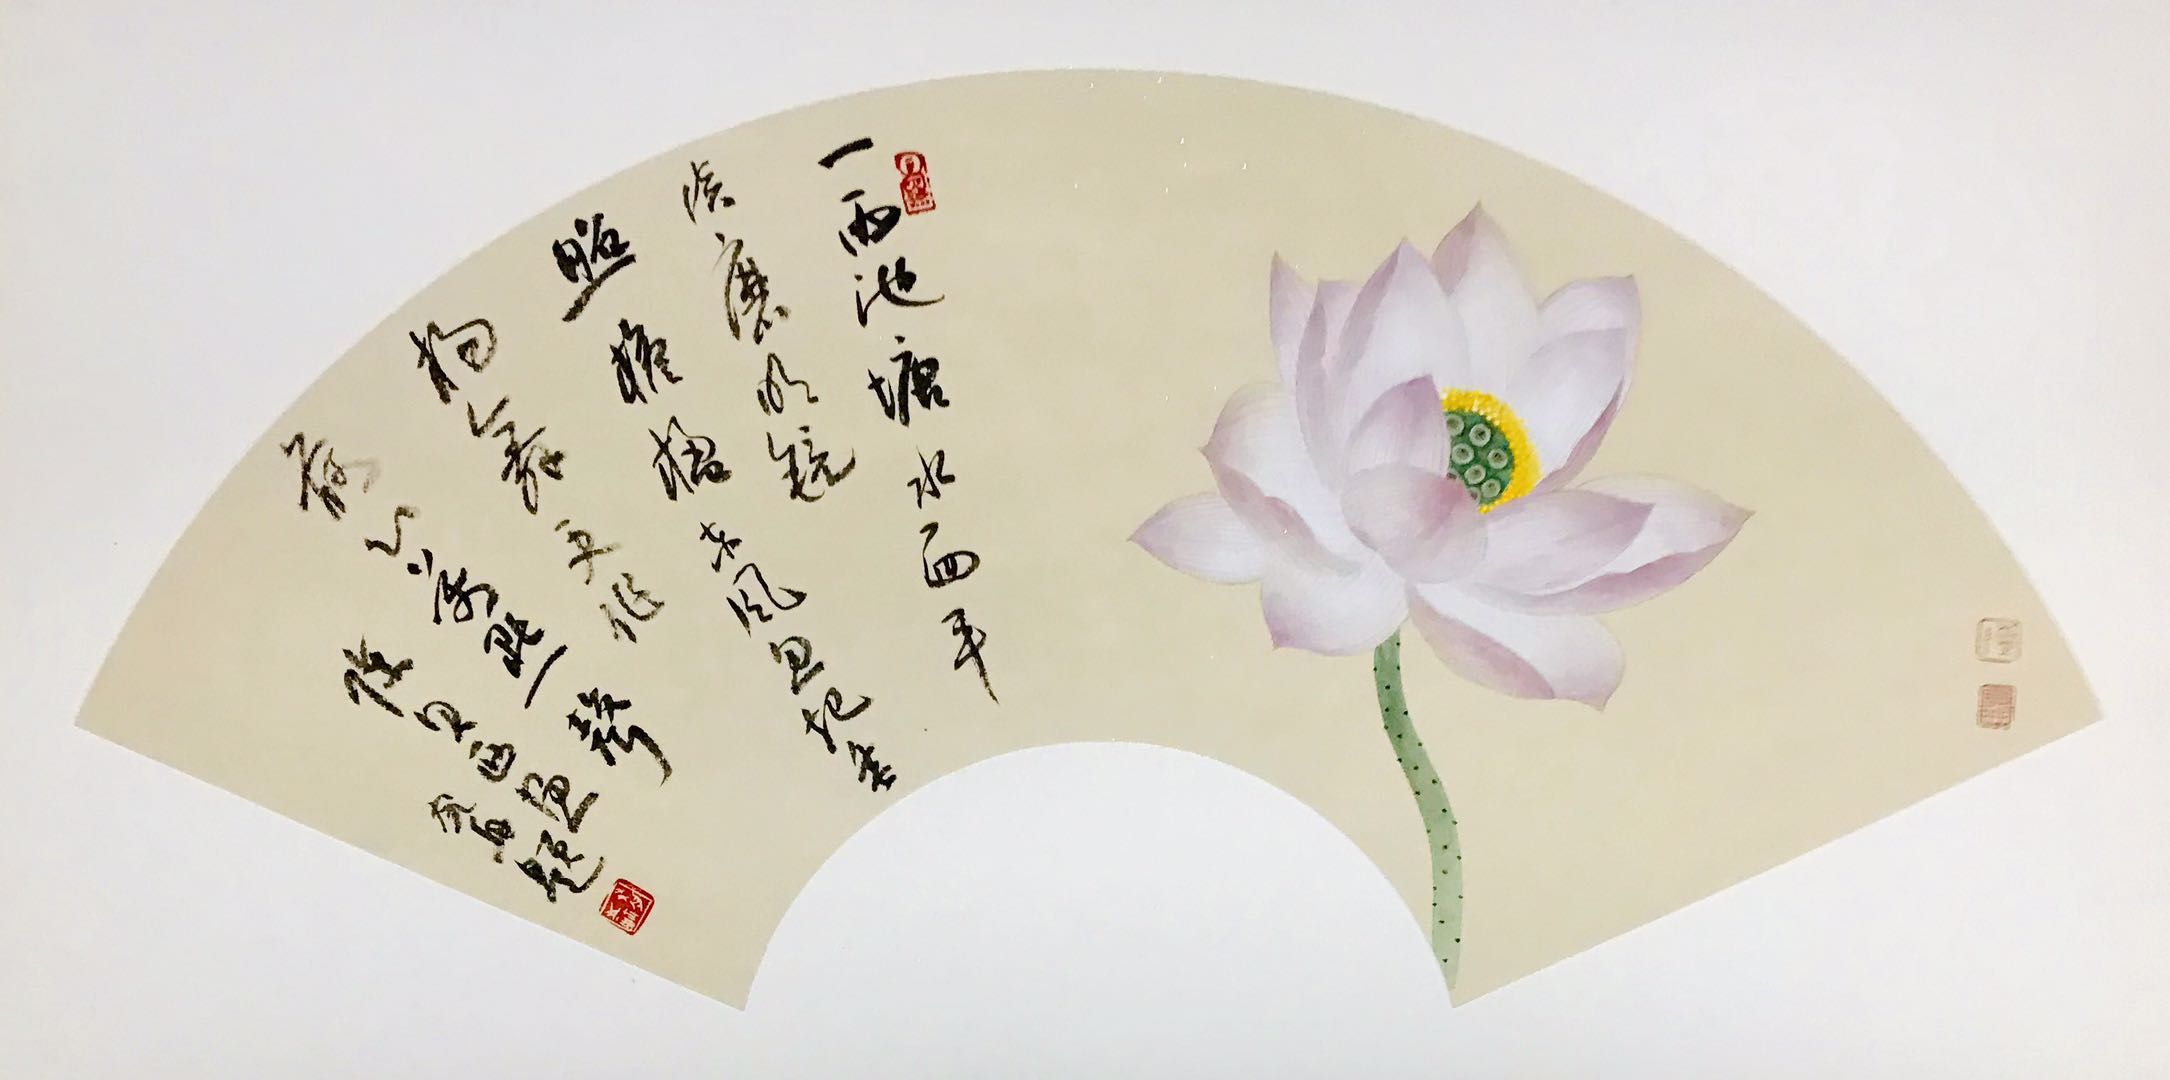 一雨池塘水面平
淡磨明镜
照檐楹东风忽起垂
杨舞更作
荷心万点声